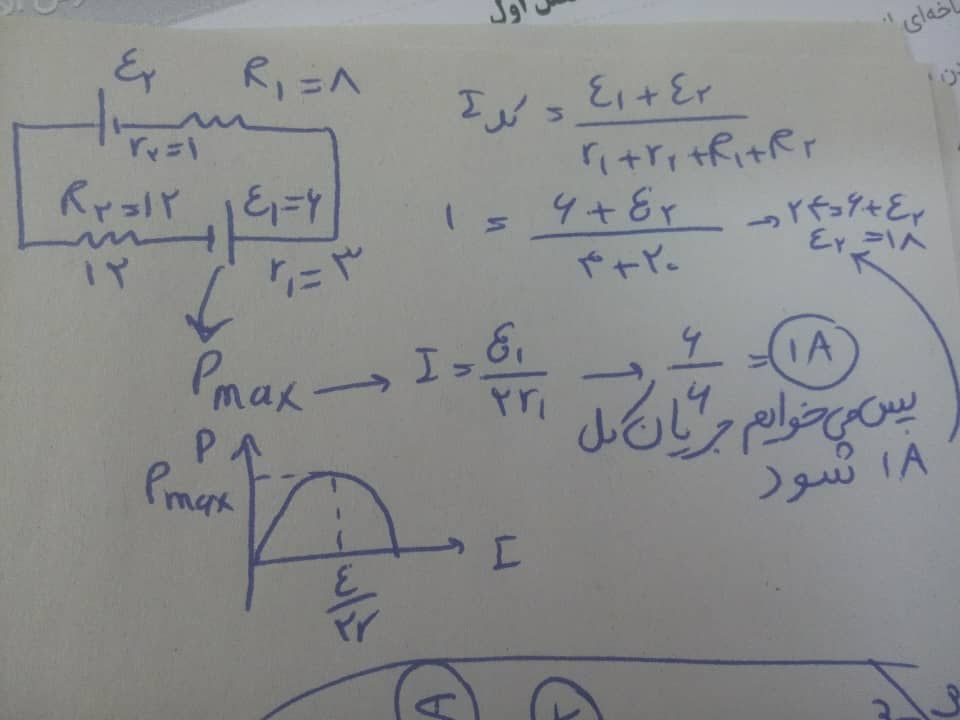 اول
ε۲ R۱=۸
r۲=۱
R۲=۱۲ ε۱=۶
۱۲ r۱=۳
I کل = ε۱+ε۲ / r۱+r۲+R۱+R۲
۱ = ۶+ε۲ / ۴+۲۰ → ۲۴=۶+ε۲
ε۲=۱۸
Pmax → I = ε۱ / ۲r۱ → ۶/۶ = ۱A
پس می‌خوایم جریان کل
۱A شود
P
Pmax
I
ε/۲r
A